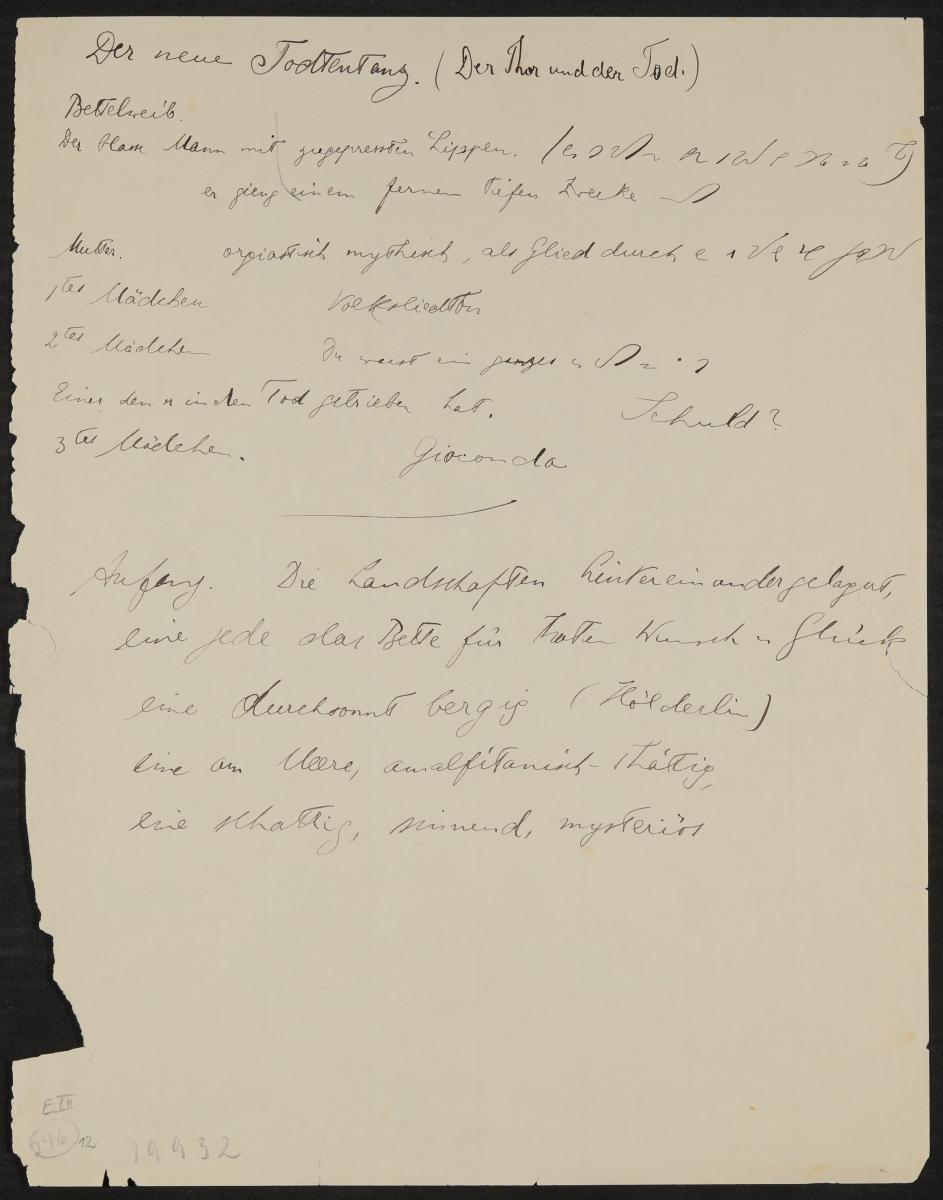 Der neue Todtentanz. (Der Thor und der Tod.)
Bettelweib.
Der blasse Mann mit zugepressten Lippen. (es
er gieng einem fernen tiefen Zwecke
Mutter. orgiastisch mythisch, als Glied durch
1tes Mädchen Volksliedton
2tes Mädchen Du warst ein ganzes
Einer den er in den Tod getrieben hat. Schuld?
3tes Mädchen. Gioconda
Anfang. Die Landschaften hintereinandergelagert,
eine jede das Bette für Thaten Wunsch u Glück
eine durchsonnt bergig (Hölderlin)
eine am Meere, amalfitanisch-thätig,
eine schattig, sinnend, mysteriös
E III
246 12
19932